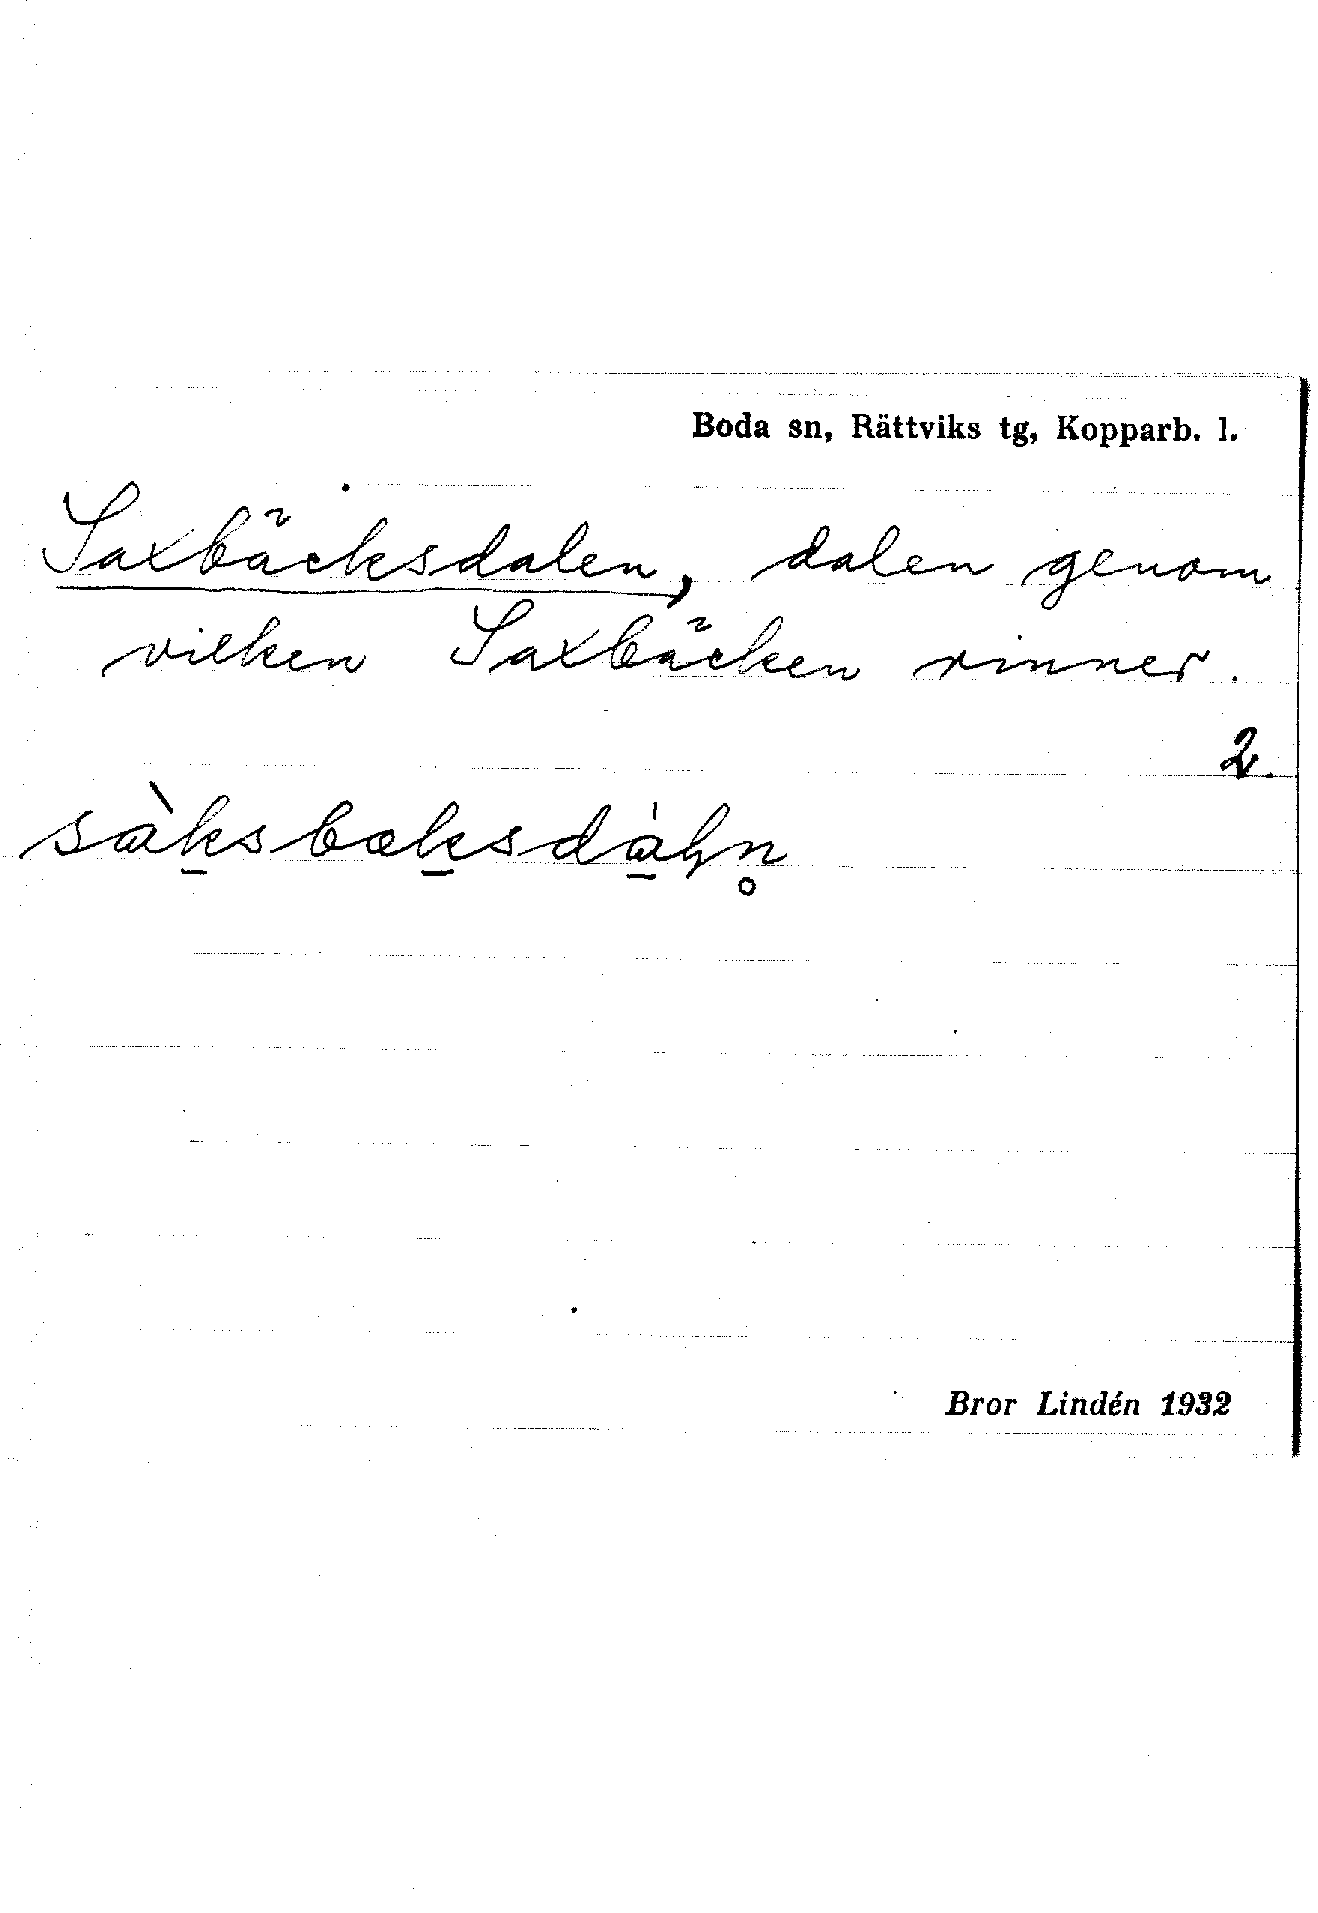 Boda sn, Rättviks tg, Kopparb. l.
Saxbäcksdalen, dalen genom
vilken Saxbäcken rinner.
2.
sàk̲sbæk̲sdà̲ɭn̥
Bror Lindén 1932